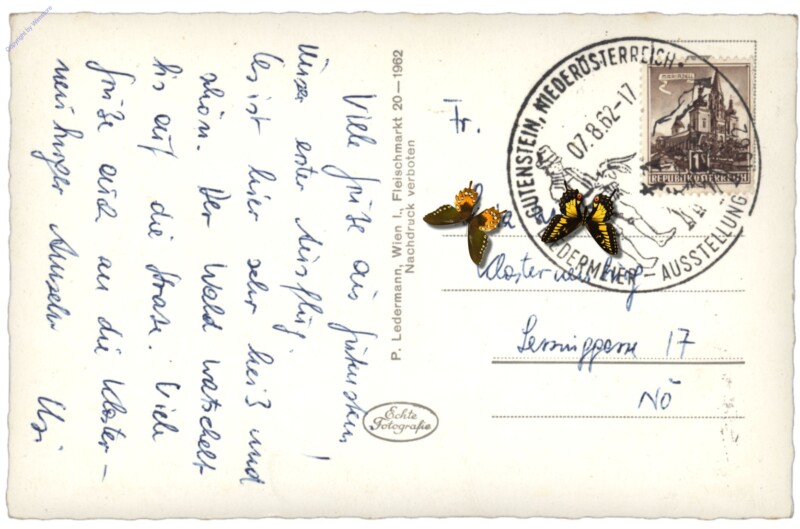 Copyright by Wienstore
Viele Grüße aus Gutenstein!
Unser erster Ausflug
Es ist hier sehr heiß und
schön. Der Wald watschelt
bis auf die Straße. Viele
Grüße auch an die Kloster-
neuburger Amseln Usi
P. Ledermann, Wien I., Fleischmarkt 20—1962
Nachdruck verboten
Echte
Fotografie
GUTENSTEIN, NIEDERÖSTERREICH.
07.8.62-17
BIEDERMEIER – AUSSTELLUNG
MARIAZELL
1S
REPUBLIK ÖSTERREICH
Fr.
Klosterneuburg
Lessinggasse 17
NÖ